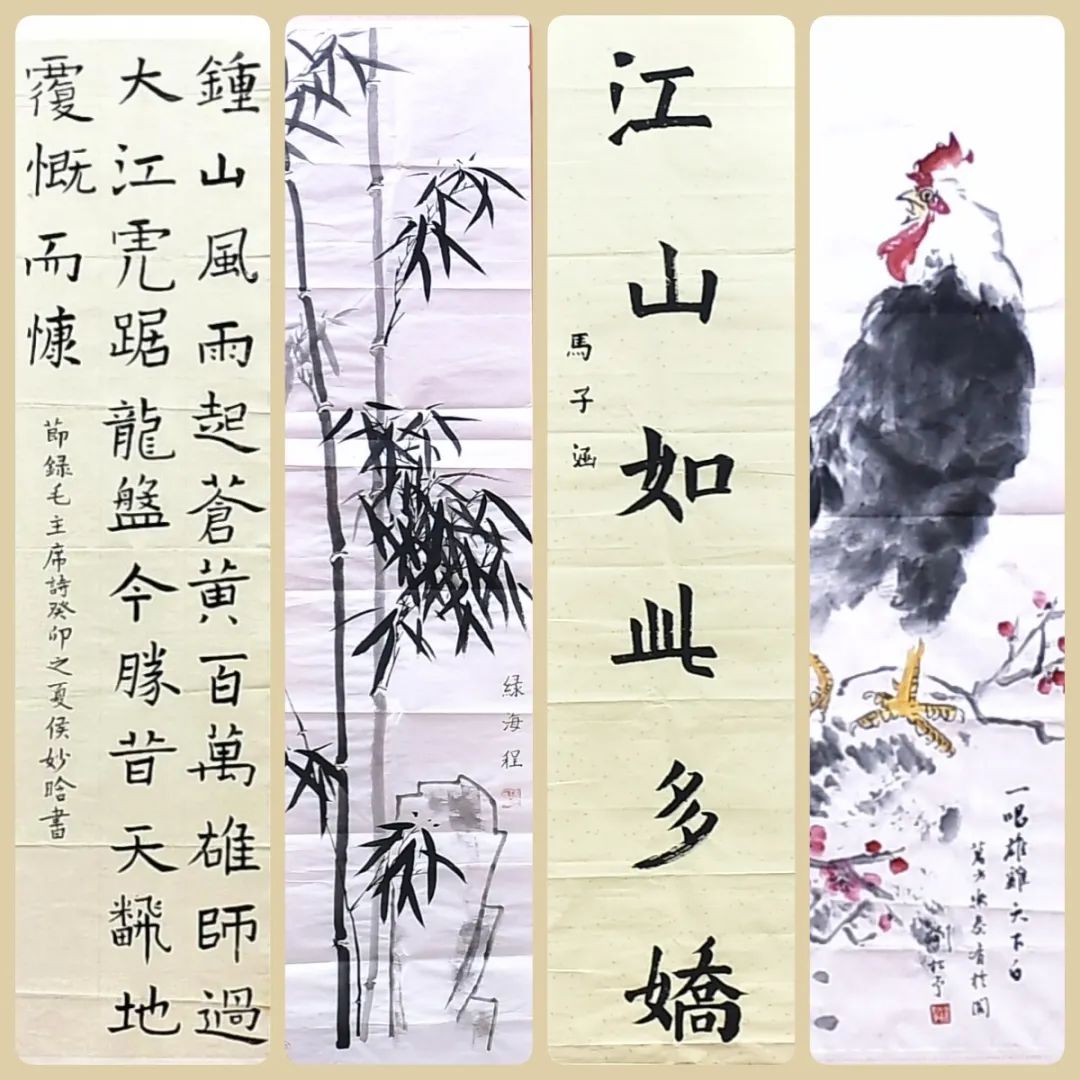 鍾山風雨起蒼黄百萬雄師過
大江虎踞龍盤今勝昔天飜地
覆慨而慷
節録毛主席詩癸卯之夏侯妙晗書
绿海程
江山如此多嬌
馬子涵
一唱雄雞天下白